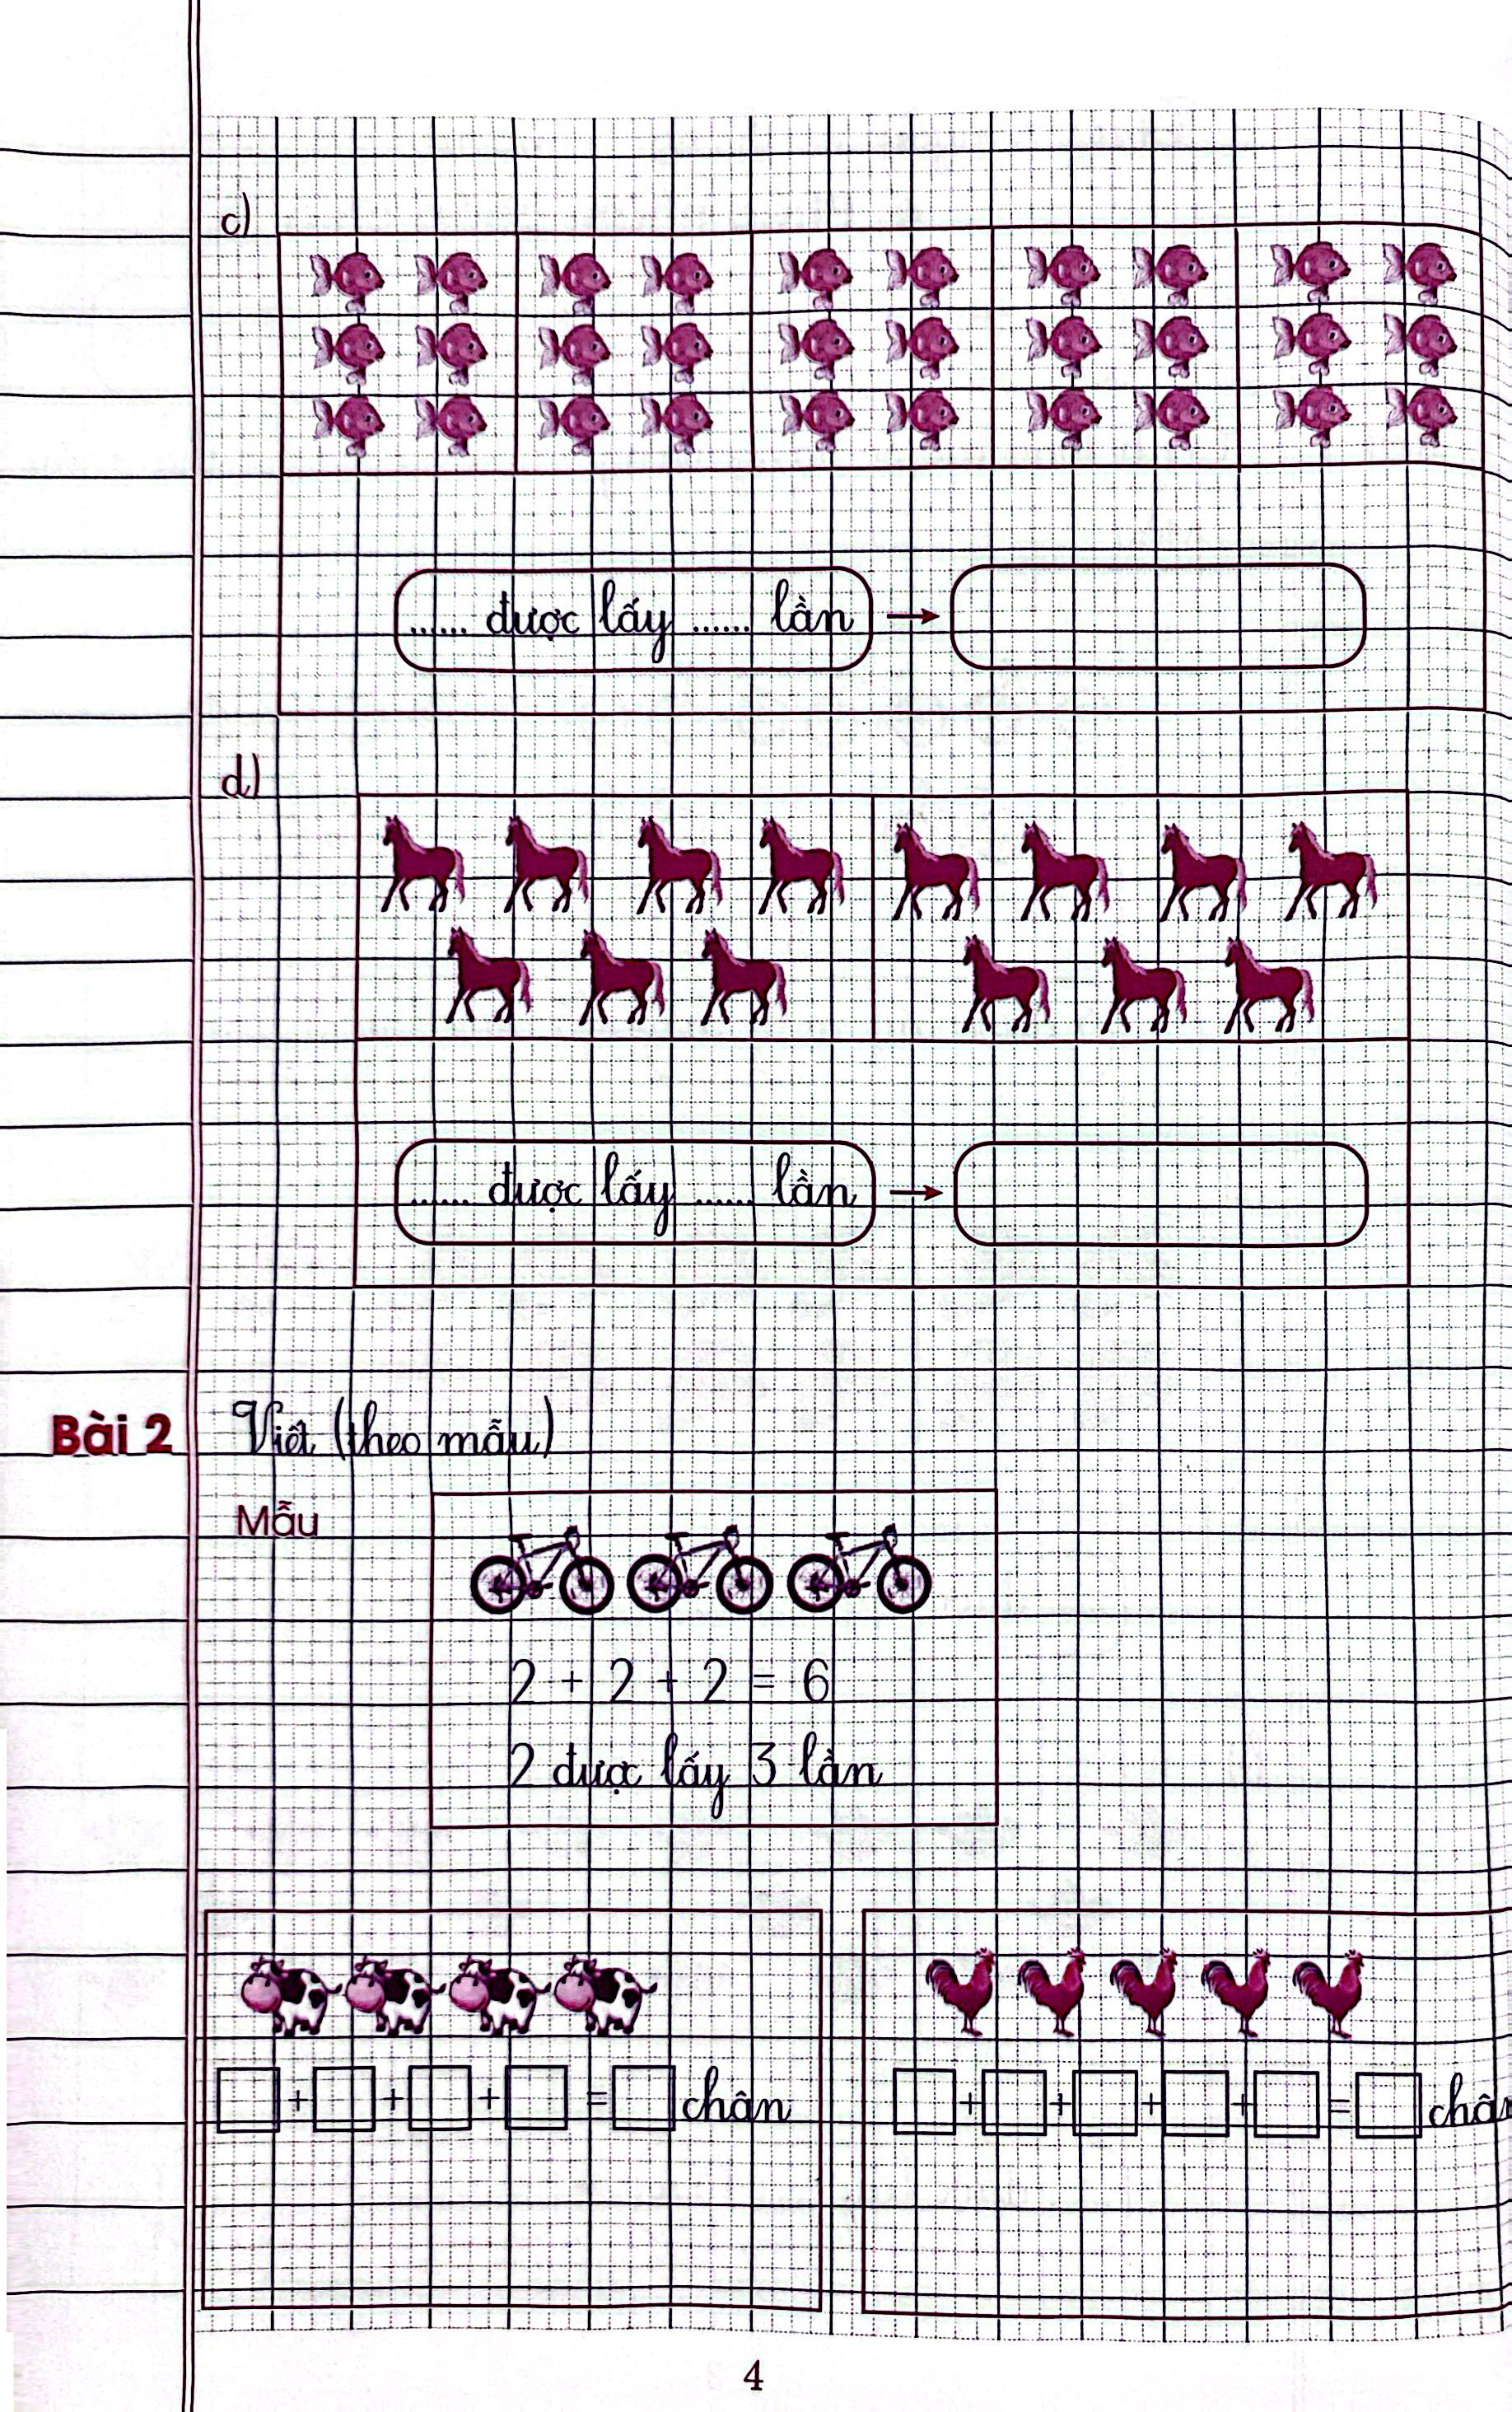 c)
...... được lấy ...... lần
d)
...... được lấy ...... lần
Bài 2 Viết (theo mẫu)
Mẫu
2 + 2 + 2 = 6
2 được lấy 3 lần
+ + + = chân
+ + + + = chân
4